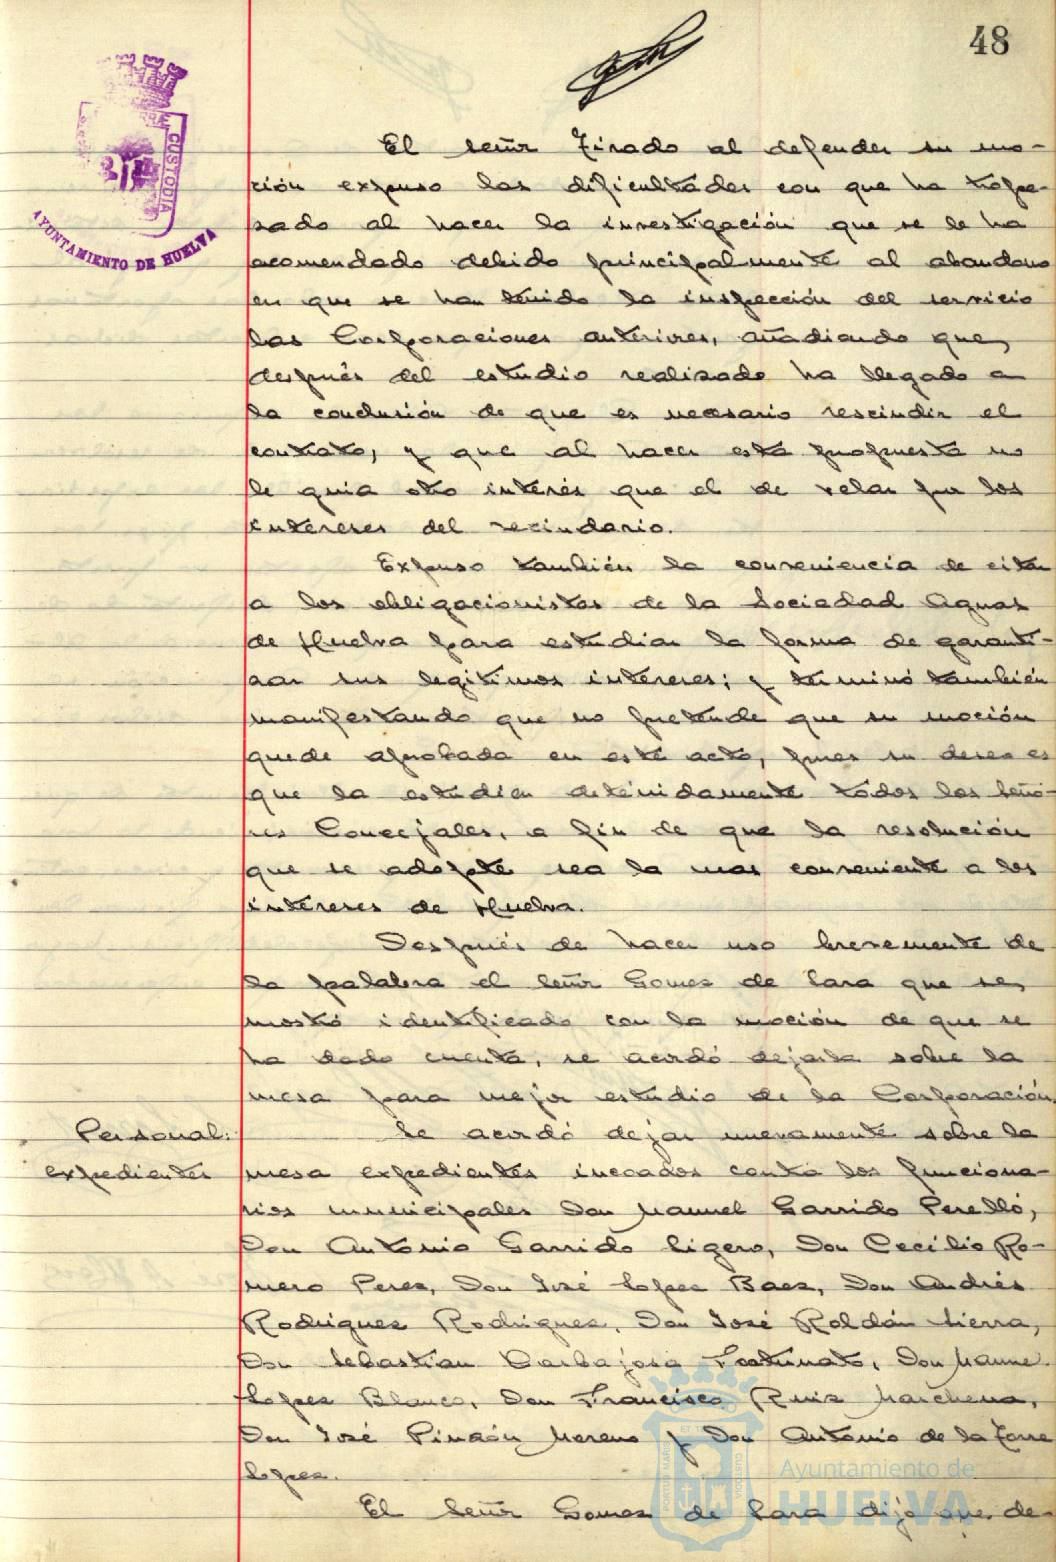 48
CUSTODIA
AYUNTAMIENTO DE HUELVA
El señor Tirado al defender su mo-
ción expuso las dificultades con que ha trope-
zado al hacer la investigación que se le ha
acomendado debido principalmente al abandono
en que se han tenido la inspección del servicio
las Corporaciones anteriores, añadiendo que,
después del estudio realizado ha llegado a
la conclusión de que es necesario rescindir el
contrato, y que al hacer esta propuesta no
le guia otro interés que el de velar por los
intereses del vecindario.
Expuso también la conveniencia de citar
a los obligacionistas de la Sociedad Aguas
de Huelva para estudiar la forma de garanti-
zar sus legitimos intereses; y terminó también
manifestando que no pretende que su moción
quede aprobada en este acto, pues su deseo es
que la estudien detenidamente todos los seño-
res Concejales, a fin de que la resolución
que se adopte sea la mas conveniente a los
intereses de Huelva.
Después de hacer uso brevemente de
la palabra el señor Gomez de Lara que se,
mostró identificado con la moción de que se
ha dado cuenta, se acordó dejarla sobre la
mesa para mejor estudio de la Corporación.
Personal:
expedientes
Se acordó dejar nuevamente sobre la
mesa expedientes incoados contra los funciona-
rios municipales Don Manuel Garrido Perelló,
Don Antonio Garrido Ligero, Don Cecilio Ro-
mero Perez, Don José Lopez Baez, Don Andrés
Rodriguez Rodriguez, Don José Roldán Sierra,
Don Sebastian Carbajosa Fortunato, Don Manuel
Lopez Blanco, Don Francisco Ruiz Marchena,
Don José Pinzón Moreno y Don Antonio de la Torre
Lopez.
El señor Gomez de Lara dijo que de-
Ayuntamiento de
HUELVA